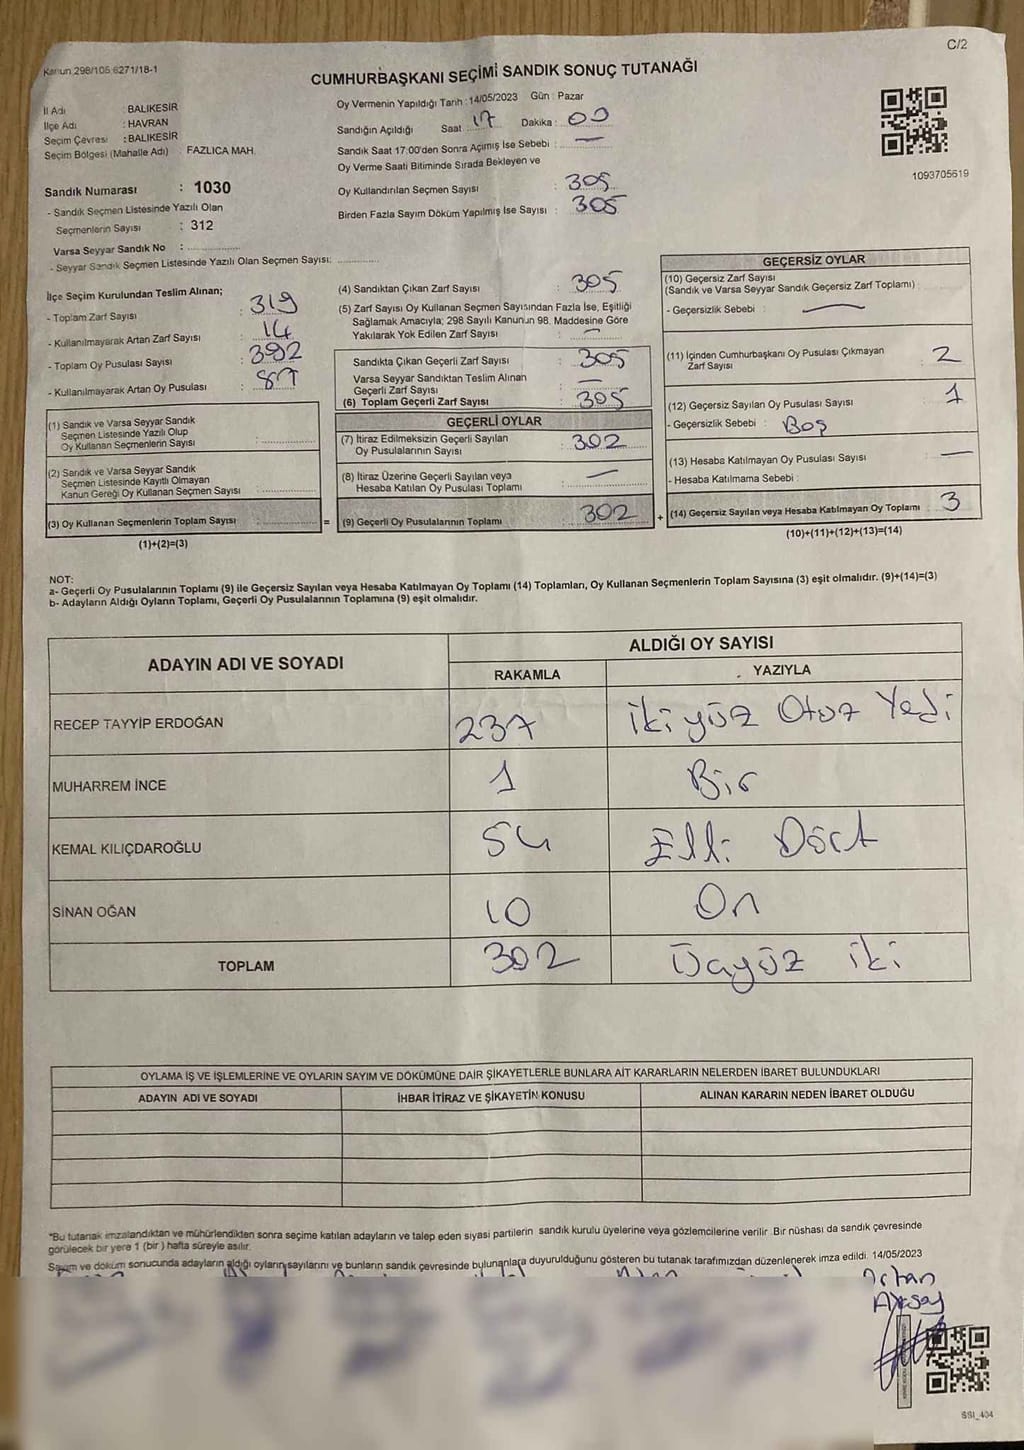 Kanun 298/105 6271/18-1
C/2
CUMHURBAŞKANI SEÇİMİ SANDIK SONUÇ TUTANAĞI
İl Adı : BALIKESİR
İlçe Adı : HAVRAN
Seçim Çevresi : BALIKESİR
Seçim Bölgesi (Mahalle Adı) : FAZLICA MAH.
Sandık Numarası : 1030
- Sandık Seçmen Listesinde Yazılı Olan
Seçmenlerin Sayısı : 312
Varsa Seyyar Sandık No :
- Seyyar Sandık Seçmen Listesinde Yazılı Olan Seçmen Sayısı:
Oy Vermenin Yapıldığı Tarih : 14/05/2023 Gün : Pazar
Sandığın Açıldığı Saat 17 Dakika : 00
Sandık Saat 17:00'den Sonra Açımış İse Sebebi : —
Oy Verme Saati Bitiminde Sırada Bekleyen ve
Oy Kullandırılan Seçmen Sayısı : 305
Birden Fazla Sayım Döküm Yapılmış İse Sayısı : 305
1093705619
İlçe Seçim Kurulundan Teslim Alınan;
- Toplam Zarf Sayısı : 319
- Kullanılmayarak Artan Zarf Sayısı : 14
- Toplam Oy Pusulası Sayısı : 392
- Kullanılmayarak Artan Oy Pusulası : 87
(1) Sandık ve Varsa Seyyar Sandık
Seçmen Listesinde Yazılı Olup
Oy Kullanan Seçmenlerin Sayısı :
(2) Sandık ve Varsa Seyyar Sandık
Seçmen Listesinde Kayıtlı Olmayan
Kanun Gereği Oy Kullanan Seçmen Sayısı :
(3) Oy Kullanan Seçmenlerin Toplam Sayısı :
(1)+(2)=(3)
(4) Sandıktan Çıkan Zarf Sayısı : 305
(5) Zarf Sayısı Oy Kullanan Seçmen Sayısından Fazla İse, Eşitliği
Sağlamak Amacıyla; 298 Sayılı Kanunun 98. Maddesine Göre
Yakılarak Yok Edilen Zarf Sayısı : —
Sandıkta Çıkan Geçerli Zarf Sayısı : 305
Varsa Seyyar Sandıktan Teslim Alınan
Geçerli Zarf Sayısı : —
(6) Toplam Geçerli Zarf Sayısı : 305
GEÇERLİ OYLAR
(7) İtiraz Edilmeksizin Geçerli Sayılan
Oy Pusulalarının Sayısı : 302
(8) İtiraz Üzerine Geçerli Sayılan veya
Hesaba Katılan Oy Pusulası Toplamı : —
= (9) Geçerli Oy Pusulalarının Toplamı : 302
GEÇERSİZ OYLAR
(10) Geçersiz Zarf Sayısı
(Sandık ve Varsa Seyyar Sandık Geçersiz Zarf Toplamı) :
- Geçersizlik Sebebi : —
(11) İçinden Cumhurbaşkanı Oy Pusulası Çıkmayan
Zarf Sayısı : 2
(12) Geçersiz Sayılan Oy Pusulası Sayısı : 1
- Geçersizlik Sebebi : Boş
(13) Hesaba Katılmayan Oy Pusulası Sayısı : —
- Hesaba Katılmama Sebebi :
+ (14) Geçersiz Sayılan veya Hesaba Katılmayan Oy Toplamı : 3
(10)+(11)+(12)+(13)=(14)
NOT:
a- Geçerli Oy Pusulalarının Toplamı (9) ile Geçersiz Sayılan veya Hesaba Katılmayan Oy Toplamı (14) Toplamları, Oy Kullanan Seçmenlerin Toplam Sayısına (3) eşit olmalıdır. (9)+(14)=(3)
b- Adayların Aldığı Oyların Toplamı, Geçerli Oy Pusulalarının Toplamına (9) eşit olmalıdır.
ADAYIN ADI VE SOYADI
ALDIĞI OY SAYISI
RAKAMLA YAZIYLA
RECEP TAYYİP ERDOĞAN 237 iki yüz Otuz Yedi
MUHARREM İNCE 1 Bir
KEMAL KILIÇDAROĞLU 54 Elli Dört
SİNAN OĞAN 10 On
TOPLAM 302 Üçyüz iki
OYLAMA İŞ VE İŞLEMLERİNE VE OYLARIN SAYIM VE DÖKÜMÜNE DAİR ŞİKAYETLERLE BUNLARA AİT KARARLARIN NELERDEN İBARET BULUNDUKLARI
ADAYIN ADI VE SOYADI İHBAR İTİRAZ VE ŞİKAYETİN KONUSU ALINAN KARARIN NEDEN İBARET OLDUĞU
"Bu tutanak imzalandıktan ve mühürlendikten sonra seçime katılan adayların ve talep eden siyasi partilerin sandık kurulu üyelerine veya gözlemcilerine verilir. Bir nüshası da sandık çevresinde
görülecek bir yere 1 (bir) hafta süreyle asılır.
Sayım ve döküm sonucunda adayların aldığı oyların sayılarını ve bunların sandık çevresinde bulunanlara duyurulduğunu gösteren bu tutanak tarafımızdan düzenlenerek imza edildi. 14/05/2023
SSI_404